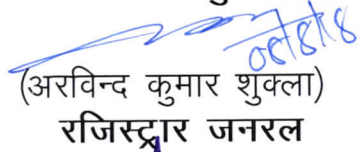 08/8/18
(अरविन्द कुमार शुक्ला)
रजिस्ट्रार जनरल